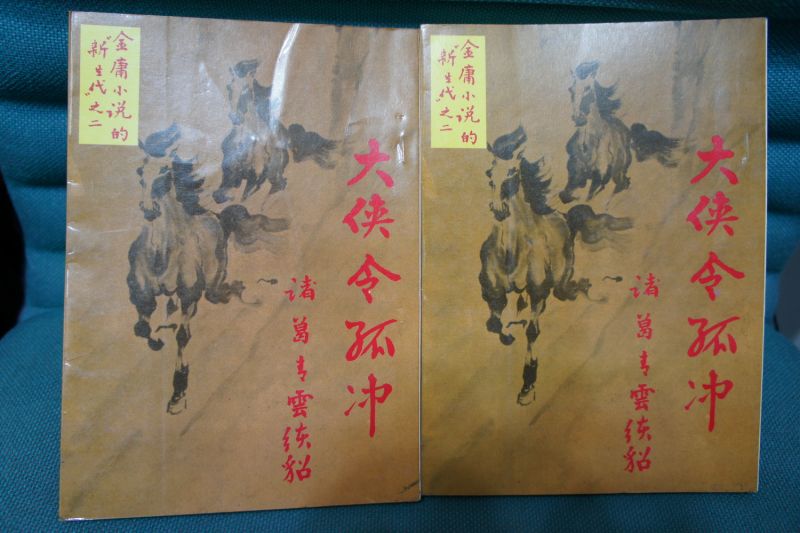 金庸小说的
“新生代”之二
大侠令孤冲
诸葛青雲续貂
金庸小说的
“新生代”之二
大侠令孤冲
诸葛青雲续貂